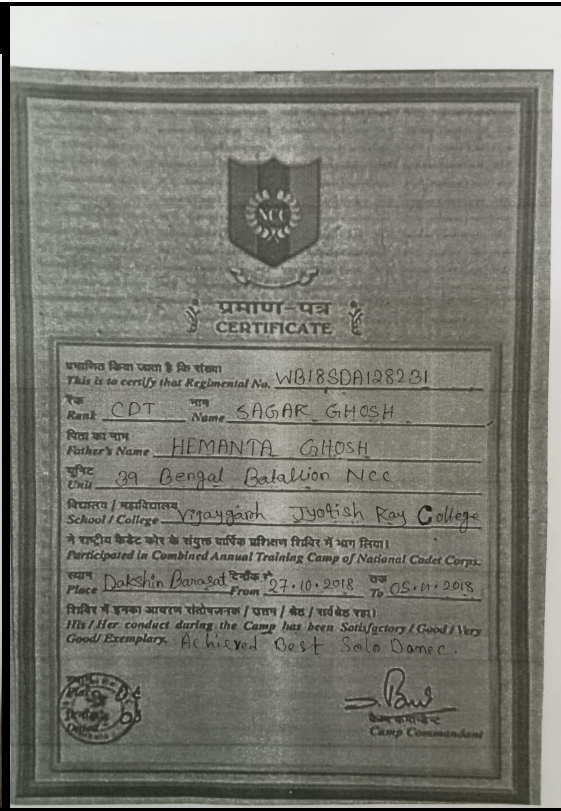 NCC
प्रमाण-पत्र
CERTIFICATE
प्रमाणित किया जाता है कि संख्या
This is to certify that Regimental No. WB18SDA128231
रैंक नाम
Rank CDT Name SAGAR GHOSH
पिता का नाम
Father's Name HEMANTA GHOSH
यूनिट
Unit 39 Bengal Batallion NCC
विद्यालय / महाविद्यालय
School / College Vijaygarh Jyotish Ray College
ने राष्ट्रीय कैडेट कोर के संयुक्त वार्षिक प्रशिक्षण शिविर में भाग लिया।
Participated in Combined Annual Training Camp of National Cadet Corps.
स्थान दिनाँक से तक
Place Dakshin Barasat From 27.10.2018 To 05.11.2018
शिविर में इनका आचरण संतोषजनक / उत्तम / श्रेष्ठ / सर्वश्रेष्ठ रहा।
His / Her conduct during the Camp has been Satisfactory / Good / Very
Good / Exemplary. Achieved Best Solo Dance.
कैम्प कमान्डेन्ट
Camp Commandant